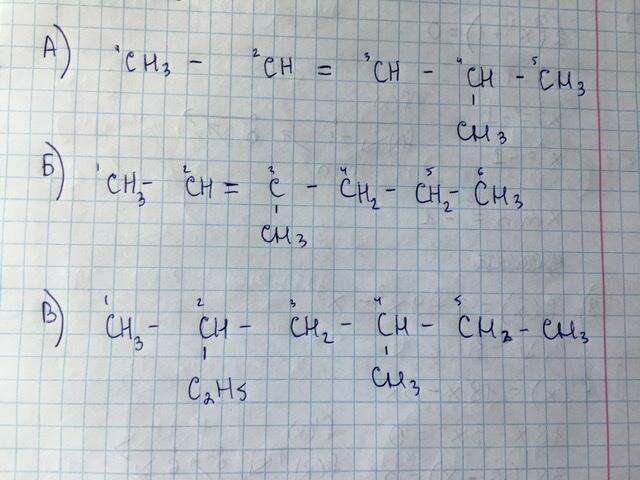 А) ¹CH₃ - ²CH = ³CH - ⁴CH - ⁵CH₃
CH₃
Б) ¹CH₃ - ²CH = ³C - ⁴CH₂ - ⁵CH₂ - ⁶CH₃
CH₃
В) ¹CH₃ - ²CH - ³CH₂ - ⁴CH - ⁵CH₂ - CH₃
C₂H5 CH₃